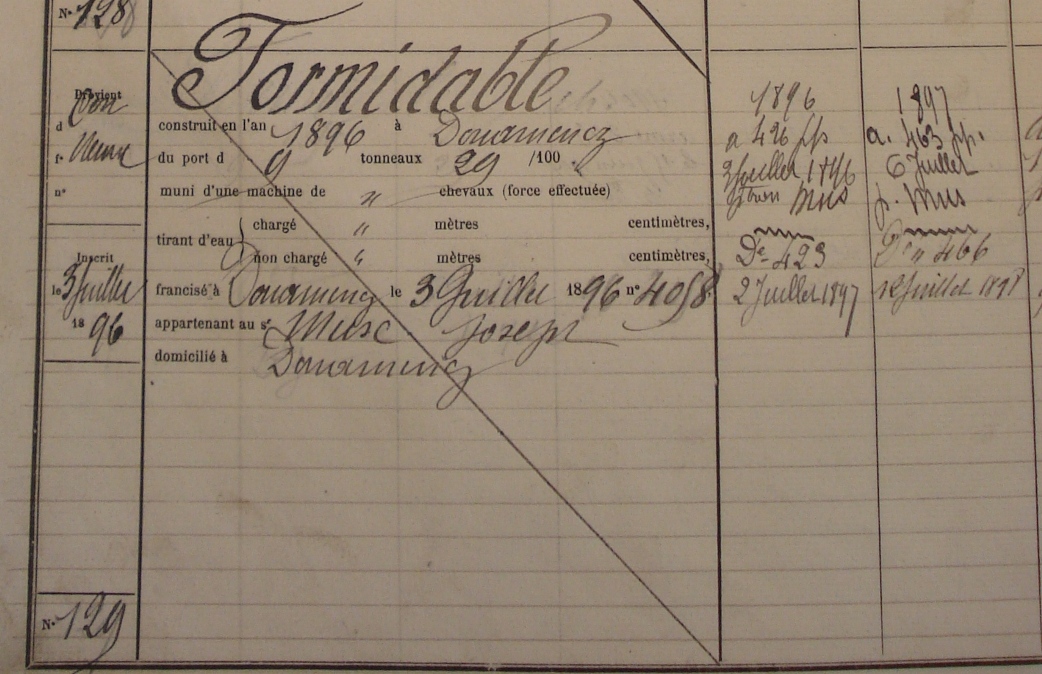 N° 128
Formidable
Provient
d
f°
n°
construit en l'an 1896 à Douarnenez
du port d 9 tonneaux 29 /100
muni d'une machine de " chevaux (force effectuée)
tirant d'eau
chargé " mètres centimètres,
non chargé " mètres centimètres,
Inscrit
le 3 Juillet
1896
francisé à Douarnenez le 3 Juillet 1896 n° 4058
appartenant au sr Joseph
domicilié à Douarnenez
N° 129
1896
a 426
3 Juillet 1896
De 423
2 Juillet 1897
1897
a. 463
6 Juillet
De " 466
Juillet 1898